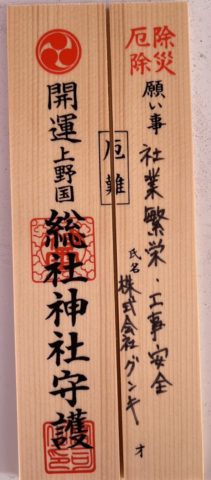 除災
厄除
願い事 社業繁栄・工事安全
氏名 株式会社グンキ
才
厄難
開運 上野国 総社神社守護